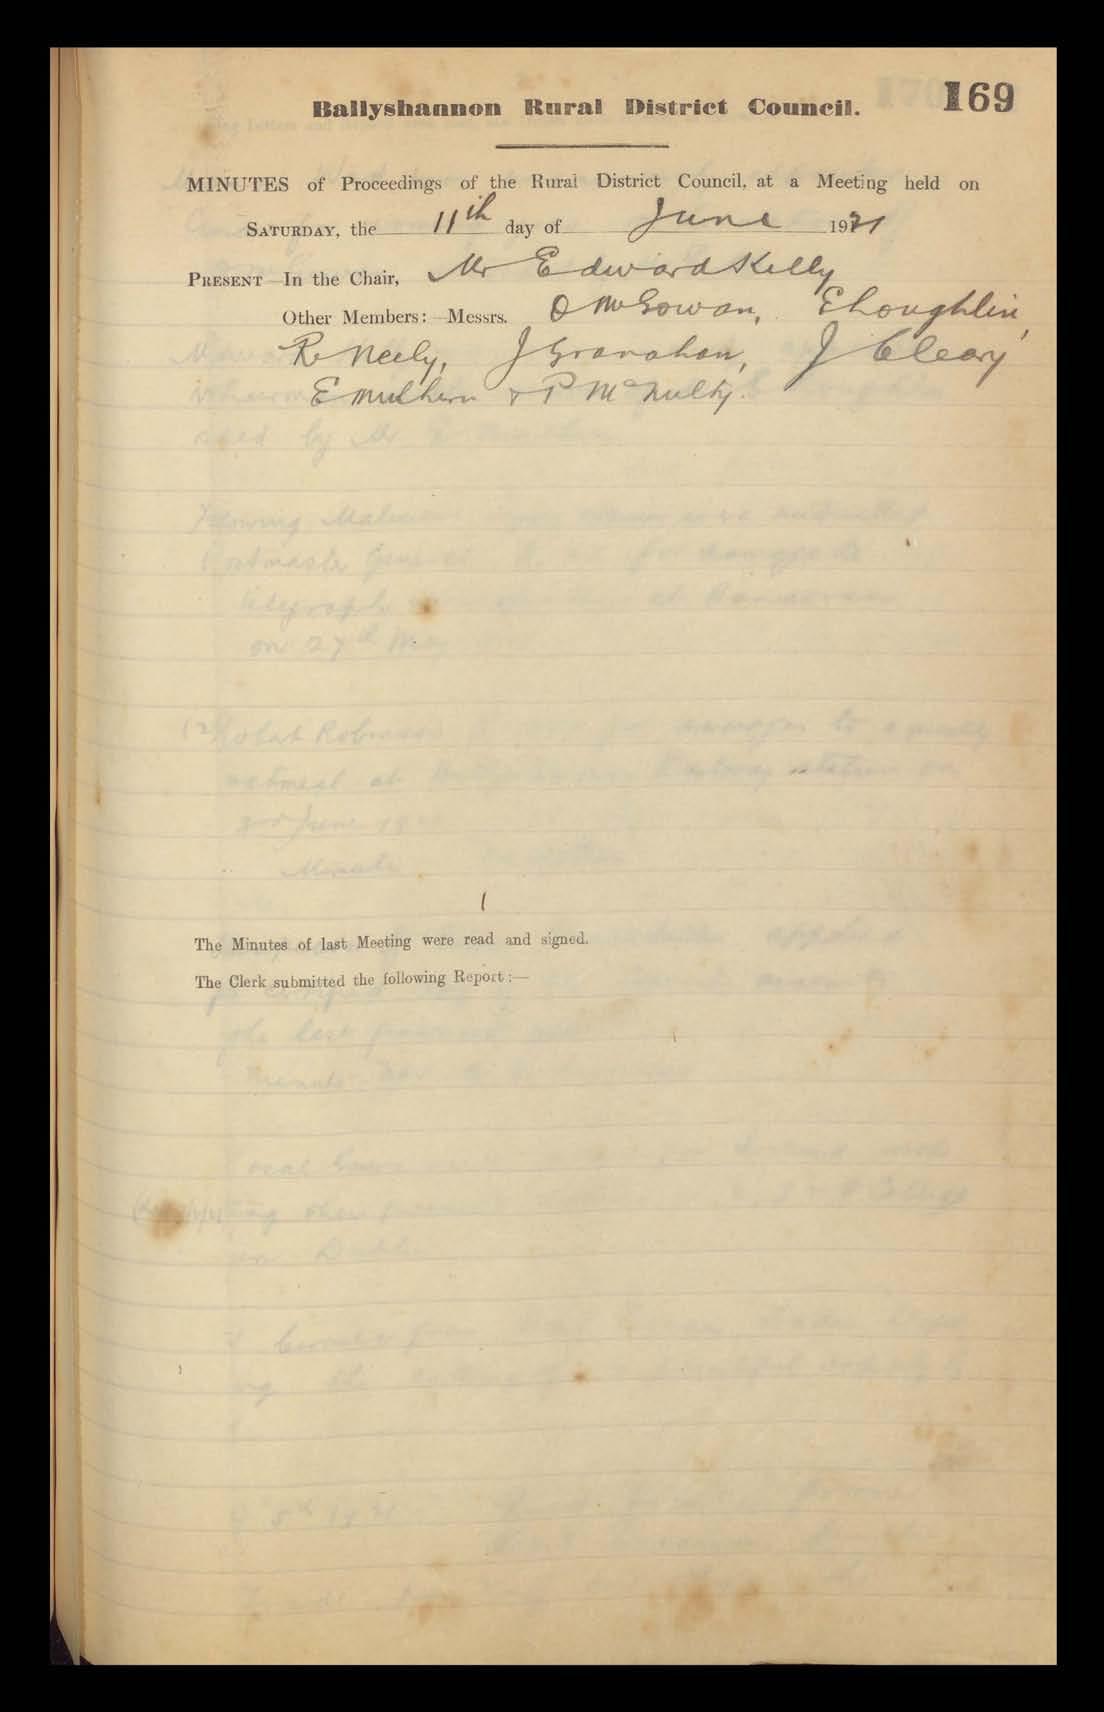 169
Ballyshannon Rural District Council.
MINUTES of Proceedings of the Rural District Council, at a Meeting held on
SATURDAY, the 11th day of June 1921
PRESENT—In the Chair, Mr Edward Kelly
Other Members:—Messrs. O McGowan, E Loughlin,
R Neely, J Granahan, J Cleary
E Mulhern & P McNulty.
The Minutes of last Meeting were read and signed.
The Clerk submitted the following Report:—